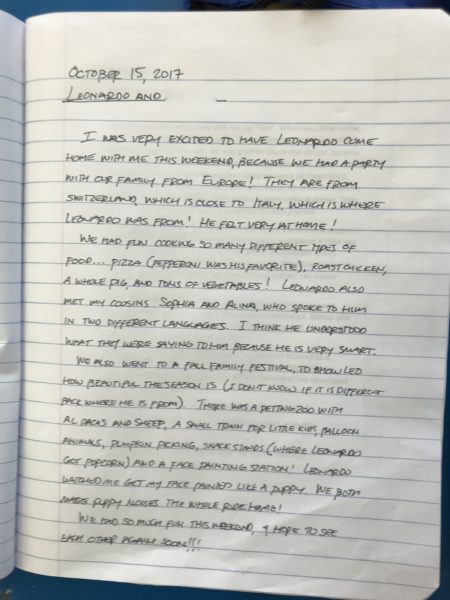 OCTOBER 15, 2017
LEONARDO AND
I WAS VERY EXCITED TO HAVE LEONARDO COME
HOME WITH ME THIS WEEKEND, BECAUSE WE HAD A PARTY
WITH OUR FAMILY FROM EUROPE! THEY ARE FROM
SWITZERLAND, WHICH IS CLOSE TO ITALY, WHICH IS WHERE
LEONARDO WAS FROM! HE FELT VERY AT HOME!
WE HAD FUN COOKING SO MANY DIFFERENT TYPES OF
FOOD... PIZZA (PEPPERONI WAS HIS FAVORITE), ROAST CHICKEN,
A WHOLE PIG, AND TONS OF VEGETABLES! LEONARDO ALSO
MET MY COUSINS SOPHIA AND ALINA, WHO SPOKE TO HIM
IN TWO DIFFERENT LANGUAGES. I THINK HE UNDERSTOOD
WHAT THEY WERE SAYING TO HIM BECAUSE HE IS VERY SMART.
WE ALSO WENT TO A FALL FAMILY FESTIVAL, TO SHOW LEO
HOW BEAUTIFUL THE SEASON IS (I DON'T KNOW IF IT IS DIFFERENT
BACK WHERE HE IS FROM). THERE WAS A PETTING ZOO WITH
ALPACAS AND SHEEP, A SMALL TRAIN FOR LITTLE KIDS, BALLOON
ANIMALS, PUMPKIN PICKING, SNACK STANDS (WHERE LEONARDO
GOT POPCORN) AND A FACE PAINTING STATION! LEONARDO
WATCHED ME GET MY FACE PAINTED LIKE A PUPPY. WE BOTH
MADE PUPPY NOISES THE WHOLE RIDE HOME!
WE HAD SO MUCH FUN THIS WEEKEND, & HOPE TO SEE
EACH OTHER AGAIN SOON!!!